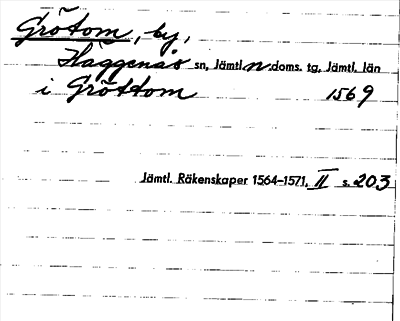 Grötom, by,
Häggenås sn, Jämtl. n. doms. tg, Jämtl. län
i Gröttom 1569
Jämtl. Räkenskaper 1564-1571, II s. 203